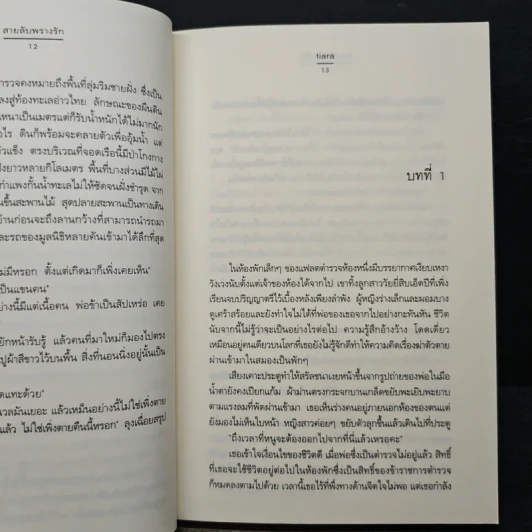 สายลับพรางรัก
12
ตำรวจคงหมายถึงพื้นที่ลุ่มริมชายฝั่ง ซึ่งเป็น
ลงสู่ท้องทะเลอ่าวไทย ลักษณะของผืนดิน
หนาเป็นเมตรแต่ก็รับน้ำหนักได้ไม่มากนัก
ไร ดินก็พร้อมจะคลายตัวเพื่ออุ้มน้ำ แต่
แข็ง ตรงบริเวณที่จอดเรือนี้มีป่าโกงกาง
ยาวหลายกิโลเมตร พื้นที่บางส่วนมีไม้ไผ่
กำแพงกั้นน้ำทะเลไม่ให้ซัดจนฝั่งชำรุด จาก
ขึ้นสะพานไม้ สุดปลายสะพานเป็นทางเดิน
บ้านก่อนจะถึงลานกว้างที่สามารถนำรถมา
และรถของมูลนิธิหลายคันเข้ามาได้ลึกที่สุด
ไม่มีหรอก ตั้งแต่เกิดมาก็เพิ่งเคยเห็น"
เป็นแขนคน"
อย่างนี้มีแต่เนื้อคน พ่อข้าเป็นสัปเหร่อ เคย
ยักหน้ารับรู้ แล้วคนที่มาใหม่ก็มองไปตรง
ปูผ้าสีขาวไว้บนพื้น สิ่งที่นอนนิ่งอยู่นั้นเป็น
ดแทะด้วย"
นวลมันเยอะ แล้วเหม็นอย่างนี้ไม่ใช่เพิ่งตาย
แล้ว ไม่ใช่เพิ่งตายคืนนี้หรอก" ลุงเฉื่อยสรุป
tiara
13
บทที่ 1
ในห้องพักเล็กๆ ของแฟลตตำรวจห้องหนึ่งมีบรรยากาศเงียบเหงา
วังเวงนับตั้งแต่เจ้าของห้องได้จากไป เขาทิ้งลูกสาววัยยี่สิบเอ็ดปีที่เพิ่ง
เรียนจบปริญญาตรีไว้เบื้องหลังเพียงลำพัง ผู้หญิงร่างเล็กและผอมบาง
ดูเศร้าสร้อยและยังทำใจไม่ได้ที่พ่อของเธอจากไปอย่างกะทันหัน ชีวิต
นับจากนี้ไม่รู้ว่าจะเป็นอย่างไรต่อไป ความรู้สึกอ้างว้าง โดดเดี่ยว
เหมือนอยู่คนเดียวบนโลกที่เธอยังไม่รู้จักดีทำให้ความคิดเรื่องฆ่าตัวตาย
ผ่านเข้ามาในสมองเป็นพักๆ
เสียงเคาะประตูทำให้สรัลชนาเงยหน้าขึ้นจากรูปถ่ายของพ่อในมือ
น้ำตายังคงเปียกแก้ม ผ้าม่านตรงกระจกบานเกล็ดขยับพะเยิบพะยาบ
ตามแรงลมที่พัดผ่านเข้ามา เธอเห็นร่างคนอยู่ภายนอกห้องของตนแต่
ยังมองไม่เห็นใบหน้า หญิงสาวค่อยๆ ขยับตัวลุกขึ้นแล้วเดินไปที่ประตู
"ถึงเวลาที่หนูจะต้องออกไปจากที่นี่แล้วเหรอคะ"
เธอเข้าใจเงื่อนไขของชีวิตดี เมื่อพ่อซึ่งเป็นตำรวจไม่อยู่แล้ว สิทธิ์
ที่เธอจะใช้ชีวิตอยู่ต่อไปในห้องพักซึ่งเป็นสิทธิ์ของข้าราชการตำรวจ
ก็หมดลงตามไปด้วย เวลานี้เธอไร้ที่พึ่งทางด้านจิตใจไม่พอ แต่เธอกำลัง